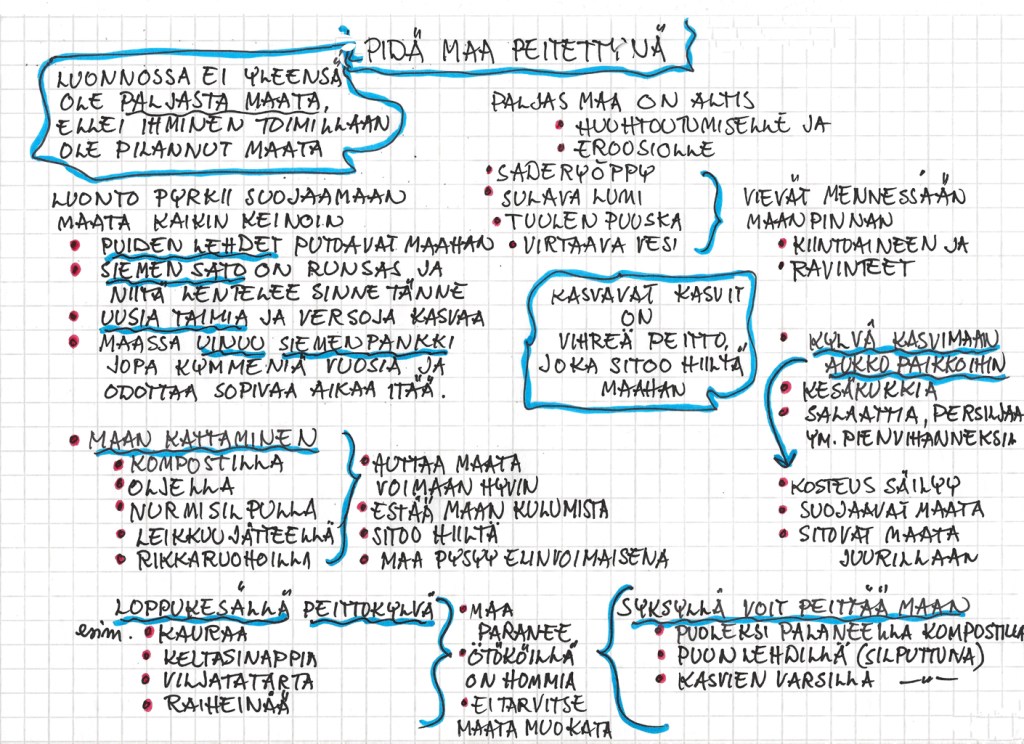 PIDÄ MAA PEITETTYNÄ
LUONNOSSA EI YLEENSÄ
OLE PALJASTA MAATA,
ELLEI IHMINEN TOIMILLAAN
OLE PILANNUT MAATA
LUONTO PYRKII SUOJAAMAAN
MAATA KAIKIN KEINOIN
• PUIDEN LEHDET PUTOAVAT MAAHAN
• SIEMEN SATO ON RUNSAS JA
NIITÄ LENTELEE SINNE TÄNNE
• UUSIA TAIMIA JA VERSOJA KASVAA
• MAASSA UINUU SIEMENPANKKI
JOPA KYMMENIÄ VUOSIA JA
ODOTTAA SOPIVAA AIKAA ITÄÄ.
PALJAS MAA ON ALTIS
• HUUHTOUTUMISELLE JA
• EROOSIOLLE
• SADERYÖPPY
• SULAVA LUMI
• TUULEN PUUSKA
• VIRTAAVA VESI
VIEVÄT MENNESSÄÄN
MAANPINNAN
• KIINTOAINEEN JA
• RAVINTEET
KASVAVAT KASVIT
ON
VIHREÄ PEITTO,
JOKA SITOO HIILTÄ
MAAHAN
• KYLVÄ KASVIMAAN
AUKKO PAIKKOIHIN
• KESÄKUKKIA
• SALAATTIA, PERSILJAA
YM. PIENVIHANNEKSIA
• KOSTEUS SÄILYY
• SUOJAAVAT MAATA
• SITOVAT MAATA
JUURILLAAN
• MAAN KATTAMINEN
• KOMPOSTILLA
• OLJELLA
• NURMISILPULLA
• LEIKKUUJÄTTEELLÄ
• RIKKARUOHOILLA
• AUTTAA MAATA
VOIMAAN HYVIN
• ESTÄÄ MAAN KULUMISTA
• SITOO HIILTÄ
• MAA PYSYY ELINVOIMAISENA
LOPPUKESÄLLÄ PEITTOKYLVÄ
esim. • KAURAA
• KELTASINAPPIA
• VILJATATARTA
• RAIHEINÄÄ
• MAA
PARANEE
• ÖTÖKÖILLÄ
ON HOMMIA
• EI TARVITSE
MAATA MUOKATA
SYKSYLLÄ VOIT PEITTÄÄ MAAN
• PUOLEKSI PALANEELLA KOMPOSTILLA
• PUUN LEHDILLÄ (SILPUTTUNA)
• KASVIEN VARSILLA —"—